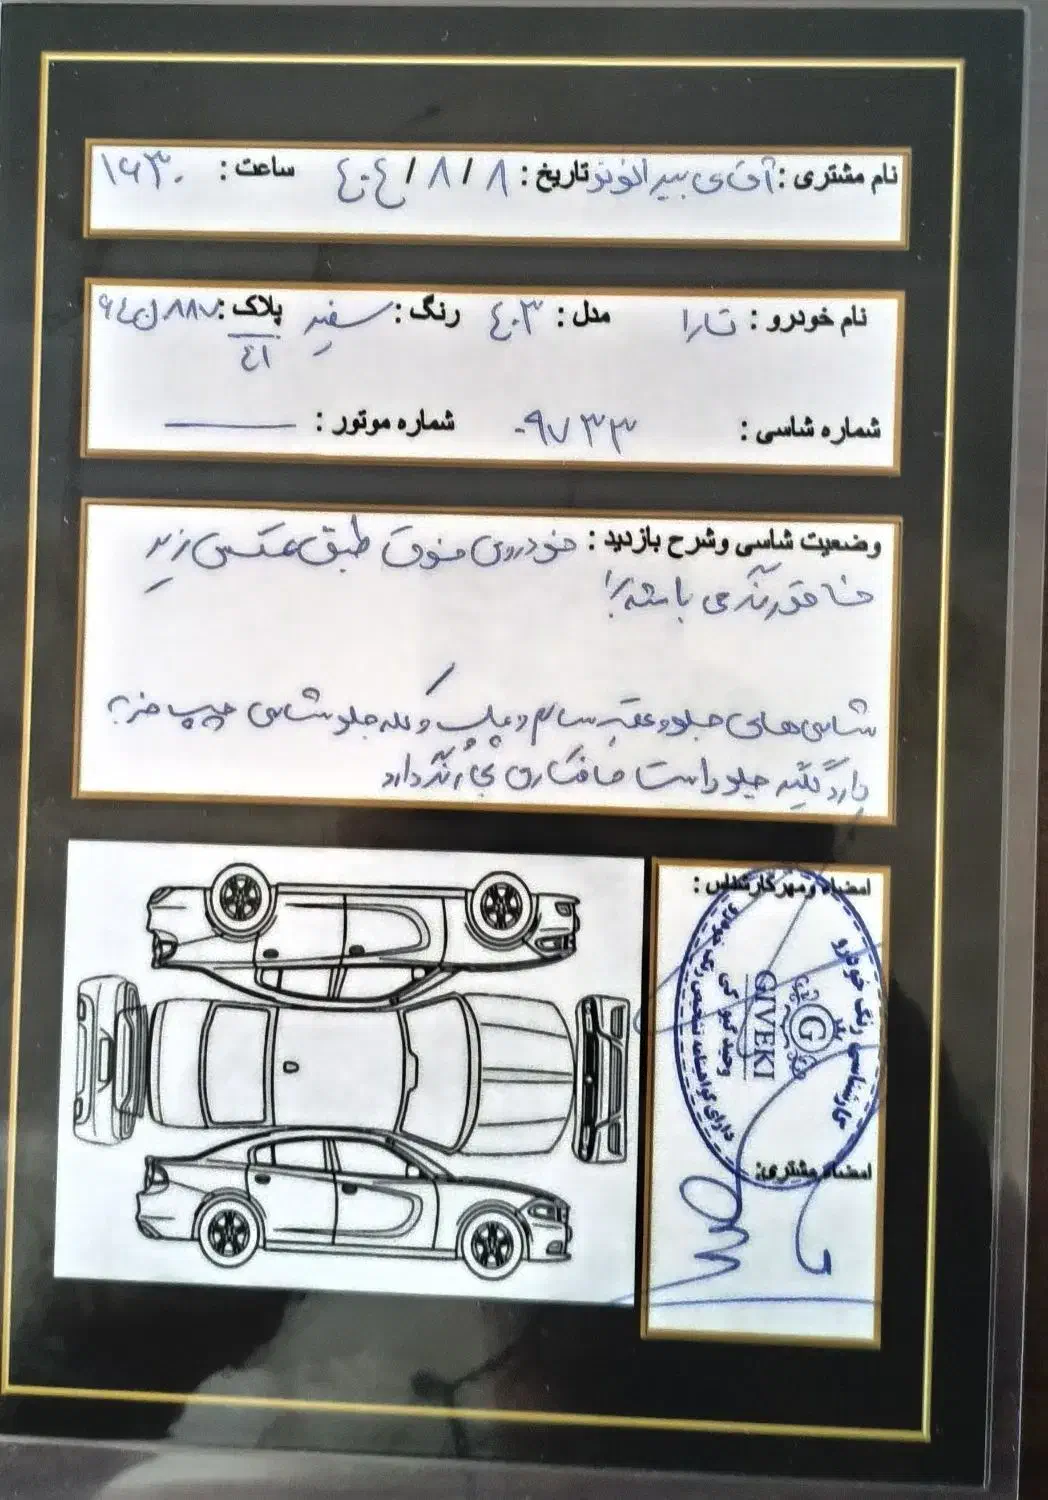 نام مشتری : آقای بیرانوند تاریخ : ۸ / ۸ / ٤٠٤ ساعت : ۱۶۳۰
نام خودرو : تارا مدل : ٤٠۳ رنگ : سفید پلاک : ۸۸۷ ل ۶٤
٤۱
شماره شاسی : ۰۹۷۳۳ شماره موتور : ——
وضعیت شاسی وشرح بازدید : خودروی فوق طبق عکس زیر
فاقد رنگ می باشد
شاسی های جلو و عقب سالم و پلمپ و کله جلو شاسی چپ ضربه
دارد گلگیر جلو راست صافکاری بی رنگ دارد
امضاء ومهرکارشناس :
کارشناسی رنگ خودرو
G
GIVEKI
وحید گیو کی
امضاء مشتری: